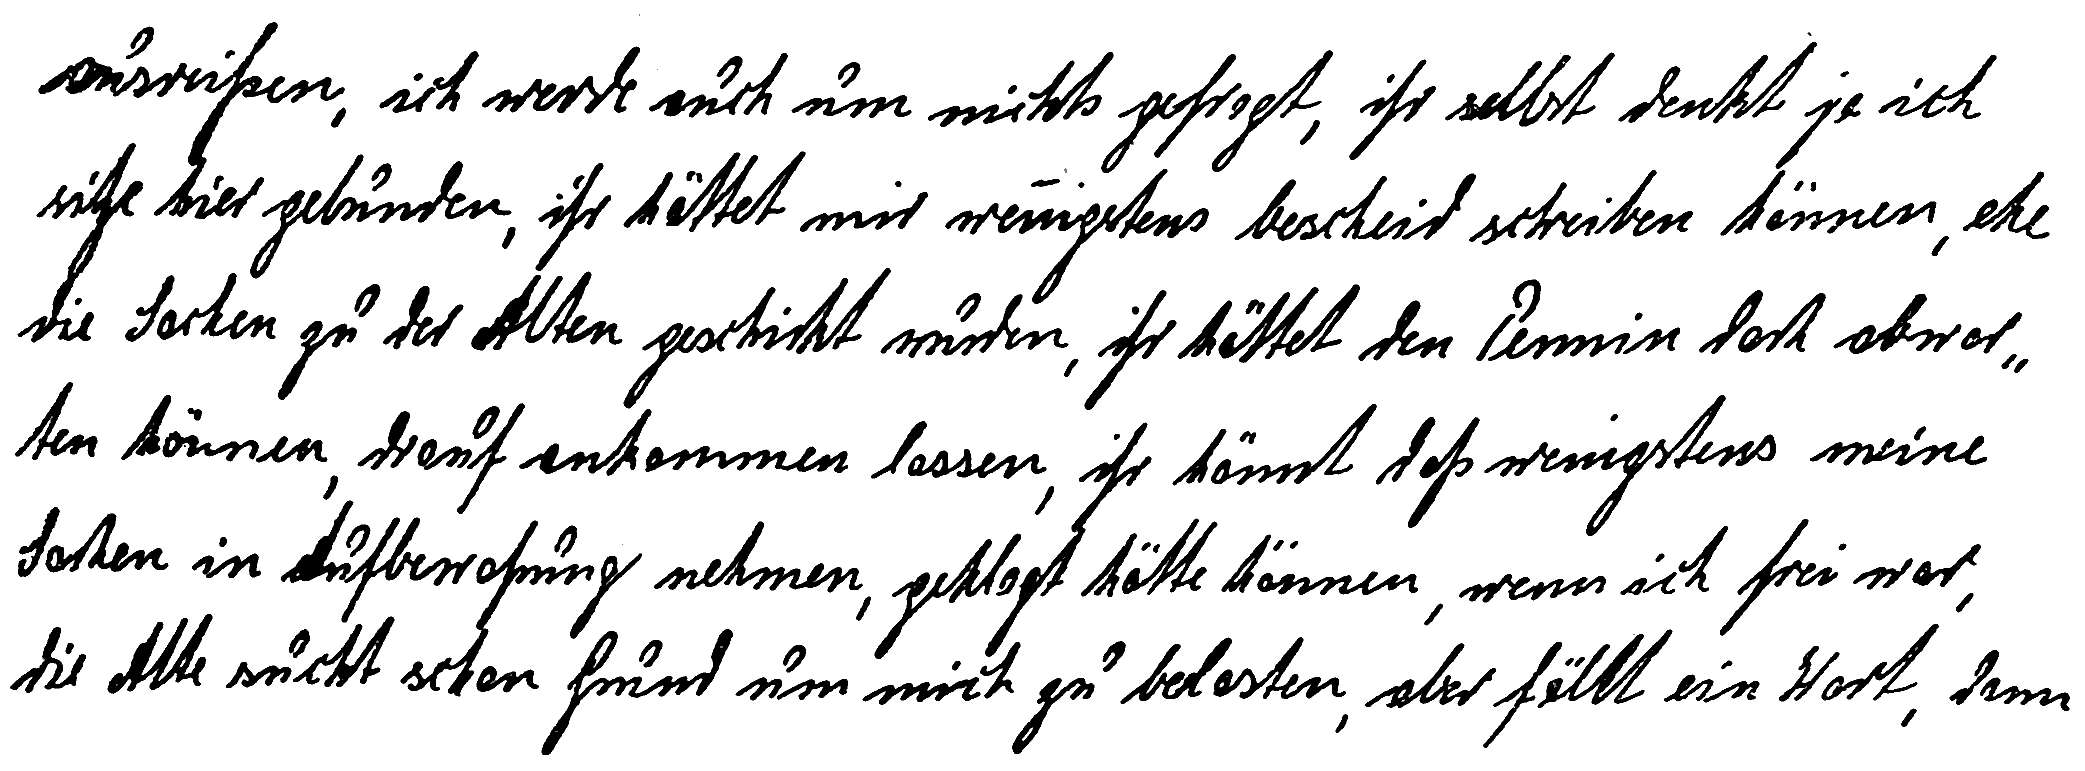 ausreißen, ich werde auch um nichts gefragt, ihr selbst denkt ja ich
sitze hier gebunden, ihr hättet mir wenigstens bescheid schreiben können, ehe
die Sachen zu der Alten geschickt wurden, ihr hättet den Termin doch abwar„
ten können, drauf ankommen lassen, ihr könnt daß wenigstens meine
Sachen in Aufbewahrung nehmen, geklagt hätte können, wenn ich frei war,
die Alte sucht schon Grund um mich zu belasten, aber fällt ein Wort, dann